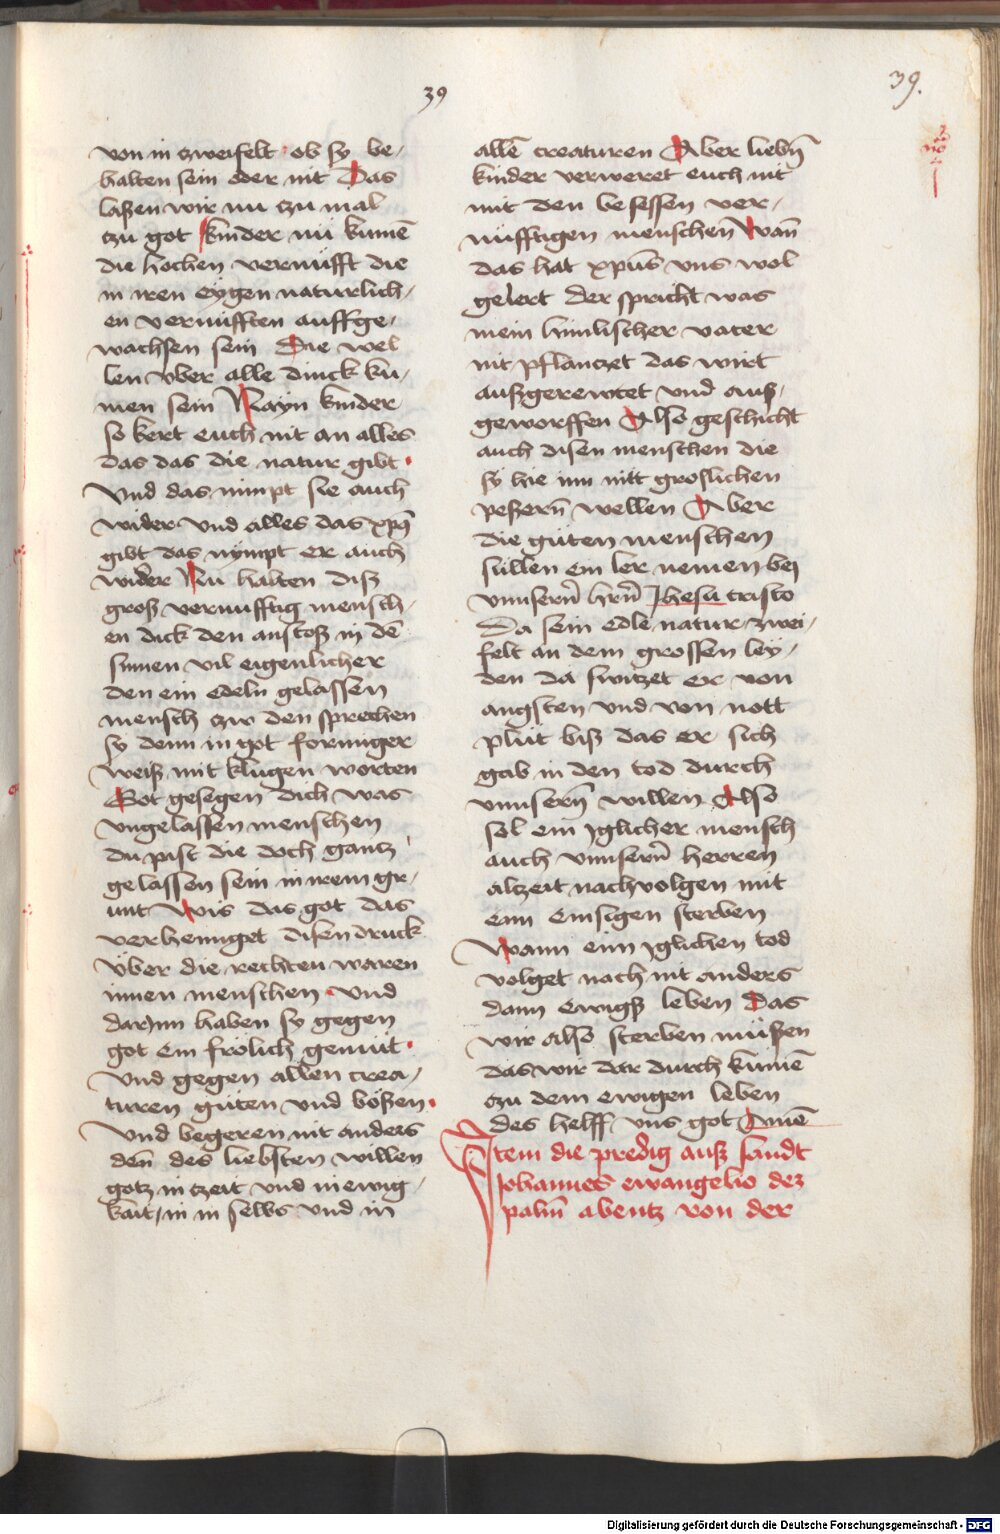 39
39.
von in zweifelt · ob sy be-
halten sein oder nit Das
laßen wir nu zu mal
zu got kinder nu kumē
die hochen vernufft die
in iren eygen naturlich-
en vernufften auffge-
wachsen sein Die wel
len vber alle dinck ku-
men sein Nayn kinder
so kert euch nit an alles
das das die natur gibt ·
Vnd das nimpt sie auch
wider vnd alles das xp̄s
gibt das nympt er auch
wider Nu halten diß
groß vernufftig mensch-
en dick den anstoß in dē
sinnen vil eigenlicher
den ein edeln gelassen
mensch zw den sprechen
sy denn in got formiger
weiß mit klugen worten
Got gesegen dich was
vngelassen menschen
du pist die doch gantz
gelassen sein in irem gr-
unt Wis das got das
verhenniget disen druck
vber die rechten waren
innen menschen · vnd
dar)nn haben sy gegen
got ein frölich gemüt ·
Vnd gegen allen crea-
turen güten vnd bößen ·
Vnd begeren nit anders
den̄ des liebsten willen
gotz in zeit vnd in ewig-
kait / in in selbs vnd in
allē creaturen Aber liebn̄
kinder verweret euch nit
mit den besessen ver-
nüfftigen menschen Wan̄
das hat xp̄us vns wol
gelert der spricht was
mein himlischer vater
nit pflanczet das wirt
außgerewtet vnd auß-
geworffen Also geschicht
auch disen menschen die
sy hie inn nitt groslichen
peßern̄ wellen Aber
die güten menschen
süllen ein ler nemen bej
vnnsern̄ hrn̄ Jhesu cristo
Da sein edle natur zwei-
felt an dem grossen ley-
den da switzet er von
angsten vnd von nott
plüt biß das er sich
gab in den tod durch
vnnsern̄ willen Also
sol ein yglicher mensch
auch vnnsern̄ herren
alzeit nachvolgen mit
eim einsigen sterben
Wann einn yglichen tod
volget nach nit anders
dann ewigß leben Das
wir also sterben müßen
das wir dar durch kumē
zu dem ewigen leben
des helff vns got Amē
Item die predig auß sandt
Johannes ewangelio dez
palm̄ abentz von der
Digitalisierung gefördert durch die Deutsche Forschungsgemeinschaft - DFG